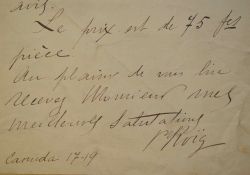 avis.
Le prix est de 75 frs
pièce.
Au plaisir de vous lire
recevez Monsieur mes
meilleures salutations
P Roig
17-19